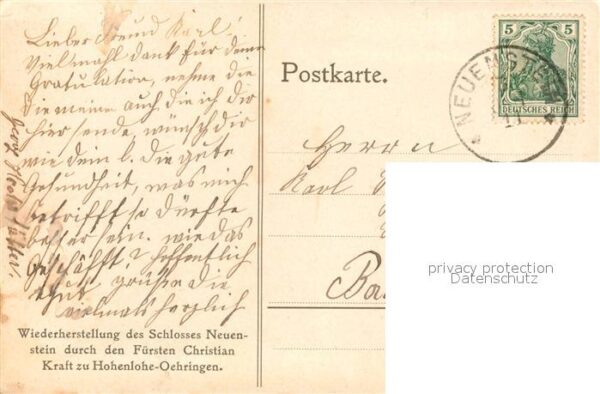 Lieber Freund Karl!
Vielmahl dank für deine
Gratulation, nehme die
die meine auch die ich dir
hier sende, wünsch dir
wie dem l. die gute
Gesundheit, was mich
betrifft so dürfte
besser sein. wie das
Geschäft? hoffentlich
gut grüße die
vielmals herzlich
Wiederherstellung des Schlosses Neuen-
stein durch den Fürsten Christian
Kraft zu Hohenlohe-Oehringen.
Postkarte.
5 5
DEUTSCHES REICH
NEUENSTEIN
11
Herrn
Karl
Ba
privacy protection
Datenschutz